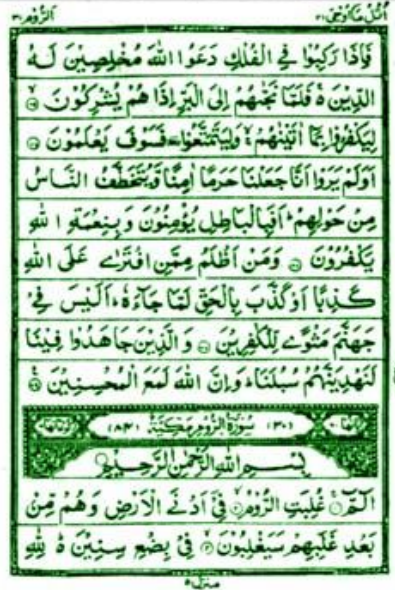 اتل مآ اوحی ۲۱
الروم ۳۰
فَاِذَا رَكِبُوْا فِي الْفُلْكِ دَعَوُا اللّٰهَ مُخْلِصِيْنَ لَهُ
الدِّيْنَ ەۚ فَلَمَّا نَجّٰىهُمْ اِلَى الْبَرِّ اِذَا هُمْ يُشْرِكُوْنَ
لِيَكْفُرُوْا بِمَآ اٰتَيْنٰهُمْ ۙ وَلِيَتَمَتَّعُوْا ۥ فَسَوْفَ يَعْلَمُوْنَ
اَوَلَمْ يَرَوْا اَنَّا جَعَلْنَا حَرَمًا اٰمِنًا وَّيُتَخَطَّفُ النَّاسُ
مِنْ حَوْلِهِمْ ؕ اَفَبِالْبَاطِلِ يُؤْمِنُوْنَ وَبِنِعْمَةِ اللّٰهِ
يَكْفُرُوْنَ وَمَنْ اَظْلَمُ مِمَّنِ افْتَرٰى عَلَى اللّٰهِ
كَذِبًا اَوْ كَذَّبَ بِالْحَقِّ لَمَّا جَآءَهٗ ؕ اَلَيْسَ فِيْ
جَهَنَّمَ مَثْوًى لِّلْكٰفِرِيْنَ وَالَّذِيْنَ جَاهَدُوْا فِيْنَا
لَنَهْدِيَنَّهُمْ سُبُلَنَا ؕ وَاِنَّ اللّٰهَ لَمَعَ الْمُحْسِنِيْنَ
(۳۰) سُوْرَةُ الرُّوْمِ مَكِّيَّةٌ (۸۴)
بِسْمِ اللّٰهِ الرَّحْمٰنِ الرَّحِيْمِ
الٓمّٓ غُلِبَتِ الرُّوْمُ فِيْٓ اَدْنَى الْاَرْضِ وَهُمْ مِّنْ
بَعْدِ غَلَبِهِمْ سَيَغْلِبُوْنَ فِيْ بِضْعِ سِنِيْنَ ەؕ لِلّٰهِ
منزل ۵